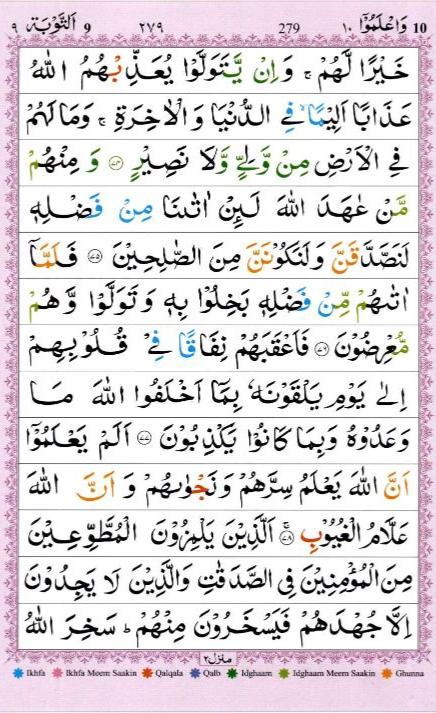 ١٠ وَاعْلَمُوْٓا 10 279 ٢٧٩ 9 اَلتَّوْبَة ٩
خَيْرًا لَّهُمْ ۚ وَاِنْ يَّتَوَلَّوْا يُعَذِّبْهُمُ اللّٰهُ
عَذَابًا اَلِيْمًا ۙ فِي الدُّنْيَا وَالْاٰخِرَةِ ۚ وَمَا لَهُمْ
فِي الْاَرْضِ مِنْ وَّلِيٍّ وَّلَا نَصِيْرٍ ﴿٧٤﴾ وَمِنْهُمْ
مَّنْ عٰهَدَ اللّٰهَ لَىِٕنْ اٰتٰىنَا مِنْ فَضْلِهٖ
لَنَصَّدَّقَنَّ وَلَنَكُوْنَنَّ مِنَ الصّٰلِحِيْنَ ﴿٧٥﴾ فَلَمَّآ
اٰتٰىهُمْ مِّنْ فَضْلِهٖ بَخِلُوْا بِهٖ وَتَوَلَّوْا وَّهُمْ
مُّعْرِضُوْنَ ﴿٧٦﴾ فَاَعْقَبَهُمْ نِفَاقًا فِيْ قُلُوْبِهِمْ
اِلٰى يَوْمِ يَلْقَوْنَهٗ بِمَآ اَخْلَفُوا اللّٰهَ مَا
وَعَدُوْهُ وَبِمَا كَانُوْا يَكْذِبُوْنَ ﴿٧٧﴾ اَلَمْ يَعْلَمُوْٓا
اَنَّ اللّٰهَ يَعْلَمُ سِرَّهُمْ وَنَجْوٰىهُمْ وَاَنَّ اللّٰهَ
عَلَّامُ الْغُيُوْبِ ﴿٧٨﴾ۚ اَلَّذِيْنَ يَلْمِزُوْنَ الْمُطَّوِّعِيْنَ
مِنَ الْمُؤْمِنِيْنَ فِي الصَّدَقٰتِ وَالَّذِيْنَ لَا يَجِدُوْنَ
اِلَّا جُهْدَهُمْ فَيَسْخَرُوْنَ مِنْهُمْ ؕ سَخِرَ اللّٰهُ
منزل ٢
Ikhfa Ikhfa Meem Saakin Qalqala Qalb Idghaam Idghaam Meem Saakin Ghunna